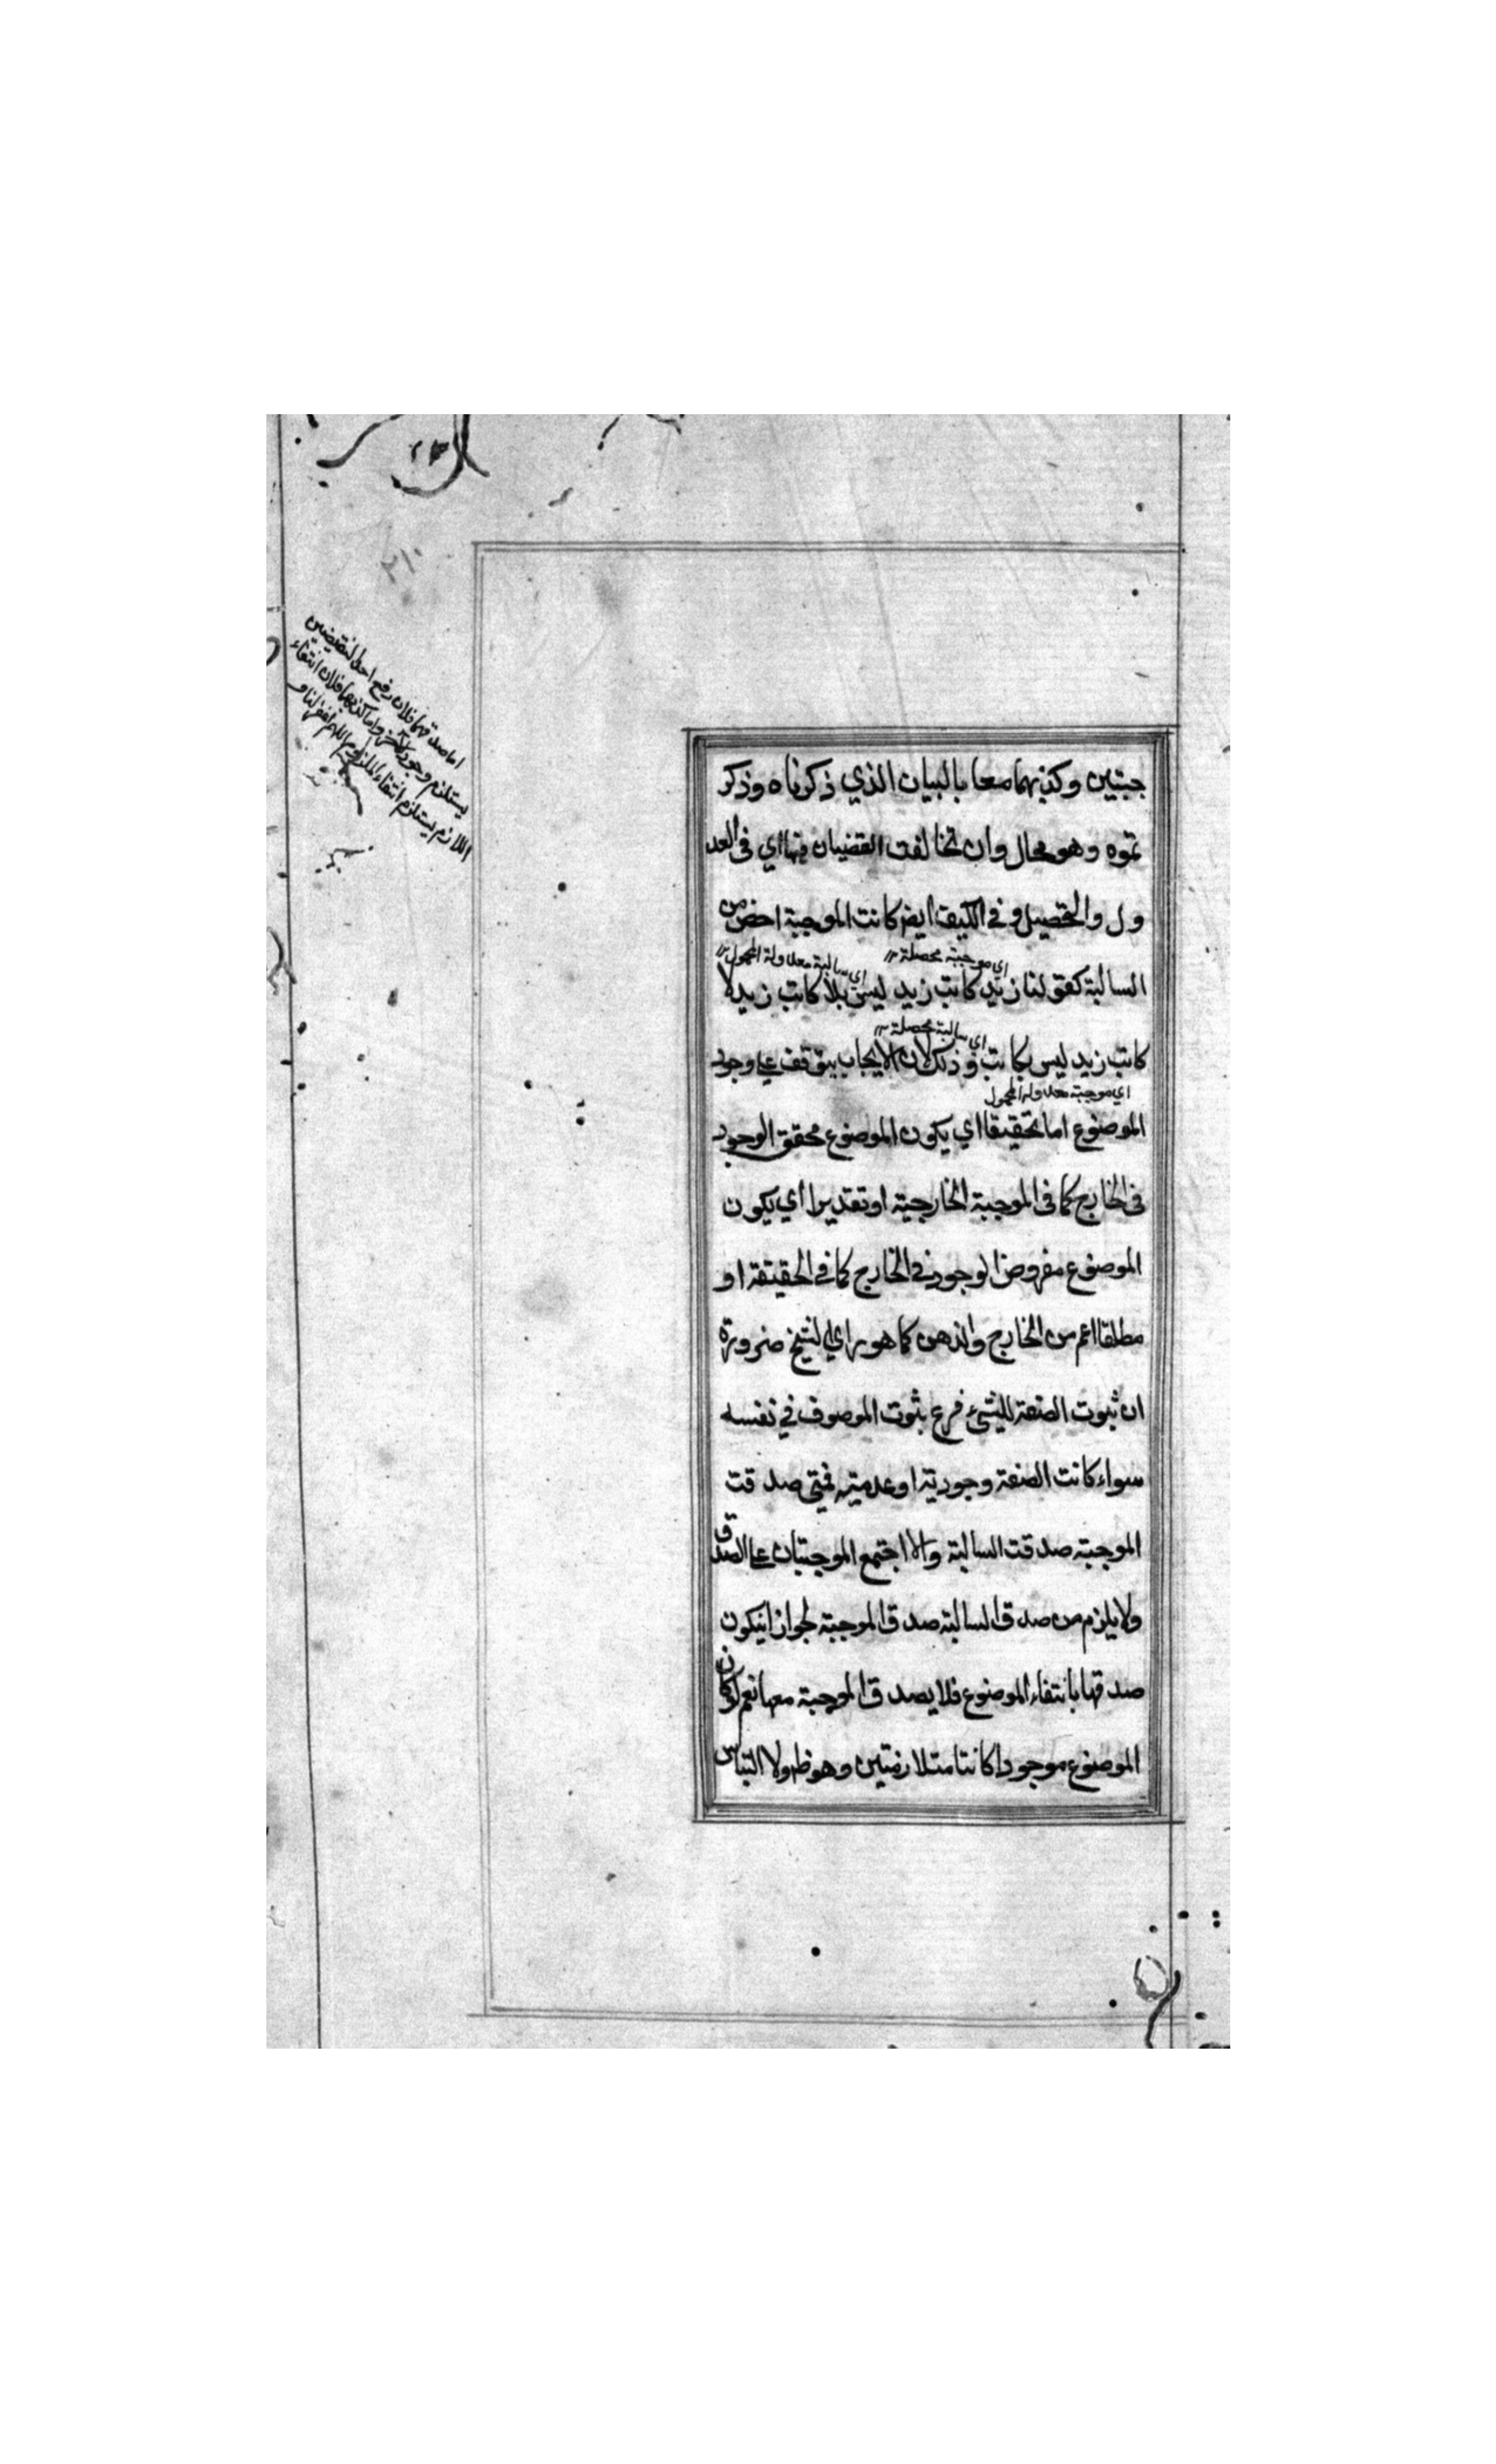 جبتين وكذبهما معا بالبيان الذي ذكرناه وذكر
تموه وهو محال وان تخالفت القضيان فيها اي في العد
ول والتحصيل وفي الكيف ايضا كانت الموجبة اخص من
اي موجبة محصلة
اي سالبة معدولة المحمول
السالبة كقولنا زيد كاتب زيد ليس بلا كاتب زيد لا
اي سالبة محصلة
كاتب زيد ليس بكاتب وذلك لان الايجاب يتوقف على وجود
اي موجبة معدولة المحمول
الموضوع اما تحقيقا اي يكون الموضوع محقق الوجود
في الخارج كما في الموجبة الخارجية او تقديرا اي يكون
الموضوع مفروض الوجود في الخارج كما في الحقيقة او
مطلقا اعم من الخارج والذهن كما هو راي الشيخ ضرورة
ان ثبوت الصفة للشيء فرع ثبوت الموصوف في نفسه
سواء كانت الصفة وجودية او عدمية فمتى صدقت
الموجبة صدقت السالبة والا اجتمع الموجبتان على الصدق
ولا يلزم من صدق السالبة صدق الموجبة لجواز انيكون
صدقها بانتفاء الموضوع فلا يصدق الموجبة معها نعم لو كان
الموضوع موجودا كانتا متلازمتين وهو ظ ولا التباس
اما صدقهما فلان رفع احد النقيضين
يستلزم وجود واما كذبهما فلان انتفاء
اللازم يستلزم انتفاء الملزوم اللهم اغفر لنا
٢١٠